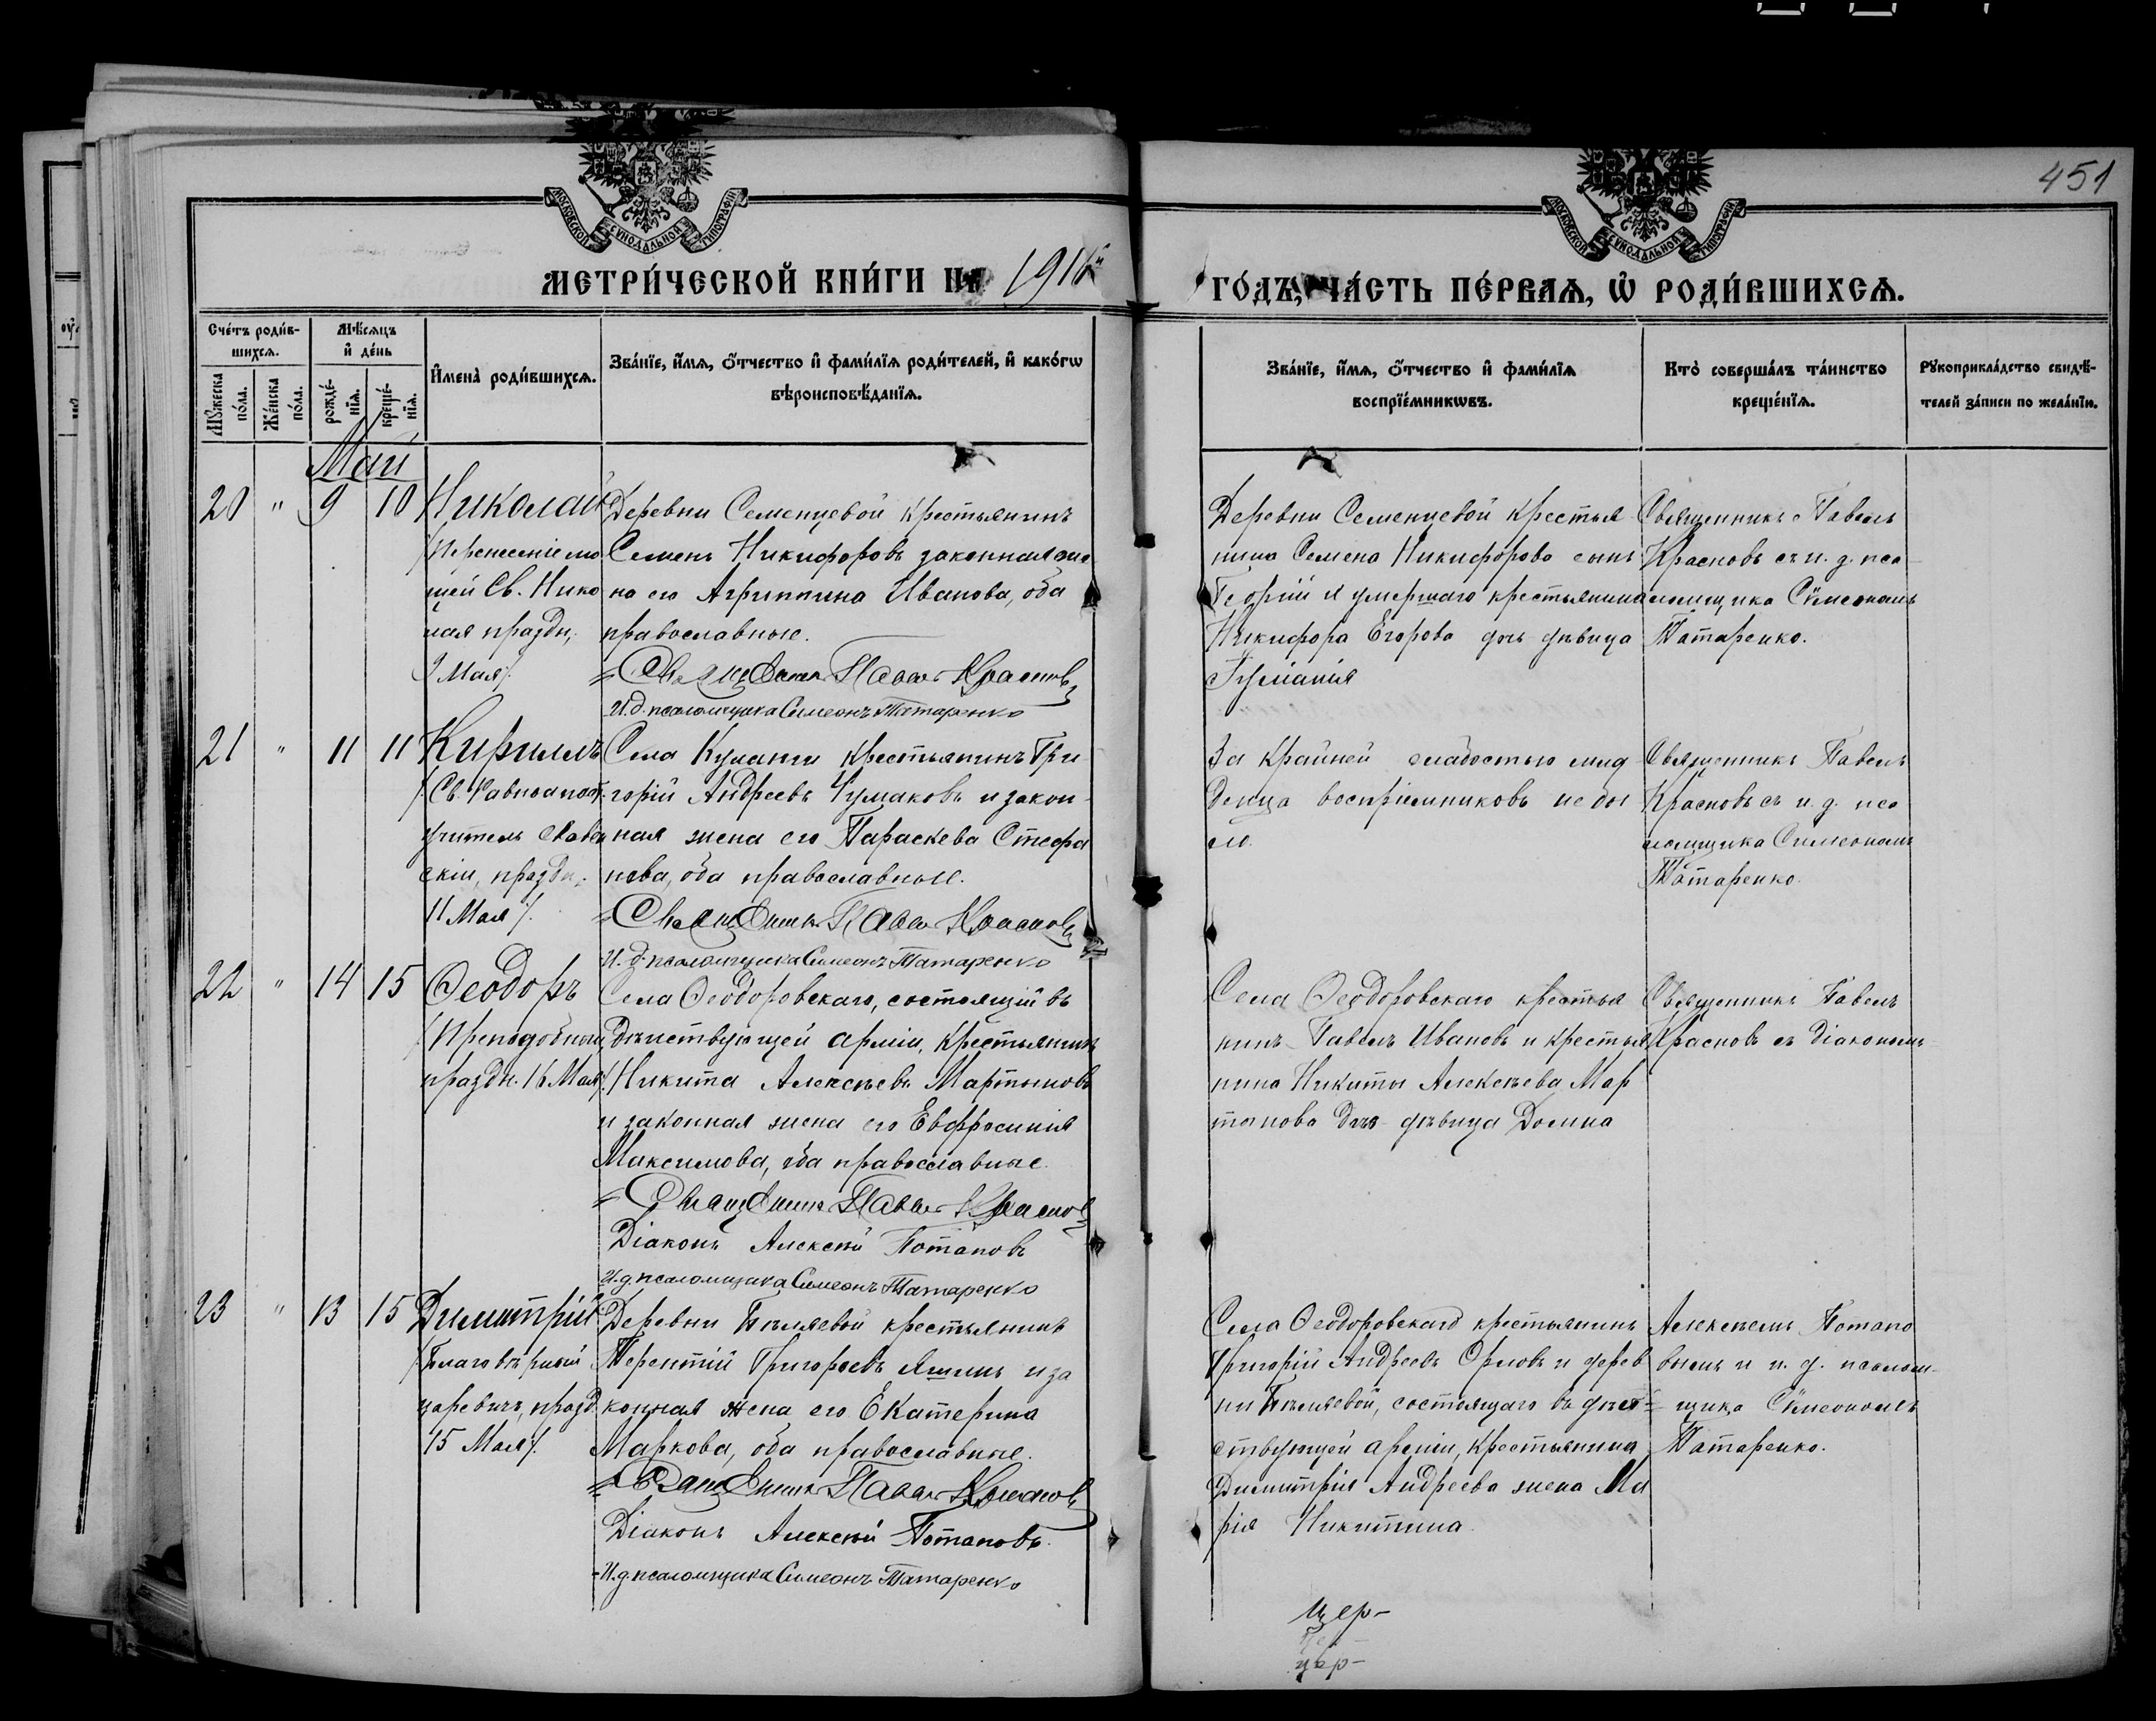 451
МОСКОВСКОЙ СѴНОДАЛЬНОЙ ТИПОГРАФІИ
МОСКОВСКОЙ СѴНОДАЛЬНОЙ ТИПОГРАФІИ
МЕТРИ́ЧЕСКОЙ КНИ́ГИ НА 1916й
ГО́ДЪ, ЧА́СТЬ ПЕ́РВАЯ, Ѡ РОДИ́ВШИХСЯ.
Сче́тъ роди́в-
шихся.
Мѣ́сяцъ
и де́нь
Му́жеска по́ла.
Же́нска по́ла.
рожде́-нїя.
креще́-нїя.
Имена̀ роди́вшихся.
Зва́нїе, и́мя, о́тчество и фами́лїя роди́телей, и како́гѡ
вѣроисповѣ́данїя.
Зва́нїе, и́мя, о́тчество и фами́лїя
воспрїе́мникѡвъ.
Кто̀ соверша́лъ та́инство
креще́нїя.
Рꙋкоприкла́дство свидѣ́-
телей за́писи по жела́нїю.
Май
20 " 9 10 Николай
/Перенесеніе мо
щей Св. Нико
лая праздн.
9 Мая/.
Деревни Семенцевой крестьянинъ
Семенъ Никифоровъ законная же
на его Агриппина Иванова, оба
православные.
Священникъ Павелъ Красновъ
И.д. псаломщика Симеонъ Татаренко
Деревни Семенцевой крестья
нина Семена Никифорова сынъ
Георгій и умершаго крестьянина
Никифора Егорова дочь дѣвица
Священникъ Павелъ
Красновъ съ и. д. пса
ломщика Сѵмеономъ
Татаренко.
21 " 11 11 Кириллъ
/Св. Равноапост.
учитель Славен
скій, праздн.
11 Мая/.
Села крестьянинъ Гри
горій Андреевъ Чумаковъ и закон
ная жена его Параскева Стефа
нова, оба православные.
Священникъ Павелъ Красновъ
И. д. псаломщика Симеонъ Татаренко
За крайней слабостью мла
денца воспріемниковъ не бы
ло.
Священникъ Павелъ
Красновъ съ и. д. пса
ломщика Симеономъ
Татаренко.
22 " 14 15 Ѳеодоръ
/Преподобный
праздн. 16 Мая/.
Села Ѳеодоровскаго, состоящій въ
дѣйствующей арміи, крестьянинъ
Никита Алексѣевъ Мартыновъ
и законная жена его Евфросинія
Максимова, оба православные.
Священникъ Павелъ Красновъ
Діаконъ Алексѣй Потаповъ
И.д. псаломщика Симеонъ Татаренко
Села Ѳеодоровскаго крестья
нинъ Павелъ Ивановъ и крестья
нина Никиты Алексѣева Мар
тынова дочь дѣвица Домна
Священникъ Павелъ
Красновъ съ діакономъ
23 " 13 15 Димитрій
/Благовѣрный
царевичъ, празд.
15 Мая/.
Деревни Бѣляевой крестьянинъ
Терентій Григорьевъ Яшинъ и за
конная жена его Екатерина
Маркова, оба православные.
Священникъ Павелъ Красновъ
Діаконъ Алексѣй Потаповъ.
И.д. псаломщика Симеонъ Татаренко
Села Ѳеодоровскаго крестьянинъ
Григорій Андреевъ Орловъ и дерев
ни Бѣляевой, состоящаго въ дѣй
ствующей арміи, крестьянина
Димитрія Андреева жена Ма
рія Никитина.
Алексѣемъ Потапо
вымъ и и. д. псалом
щика Сѵмеономъ
Татаренко.
цер-
цер-